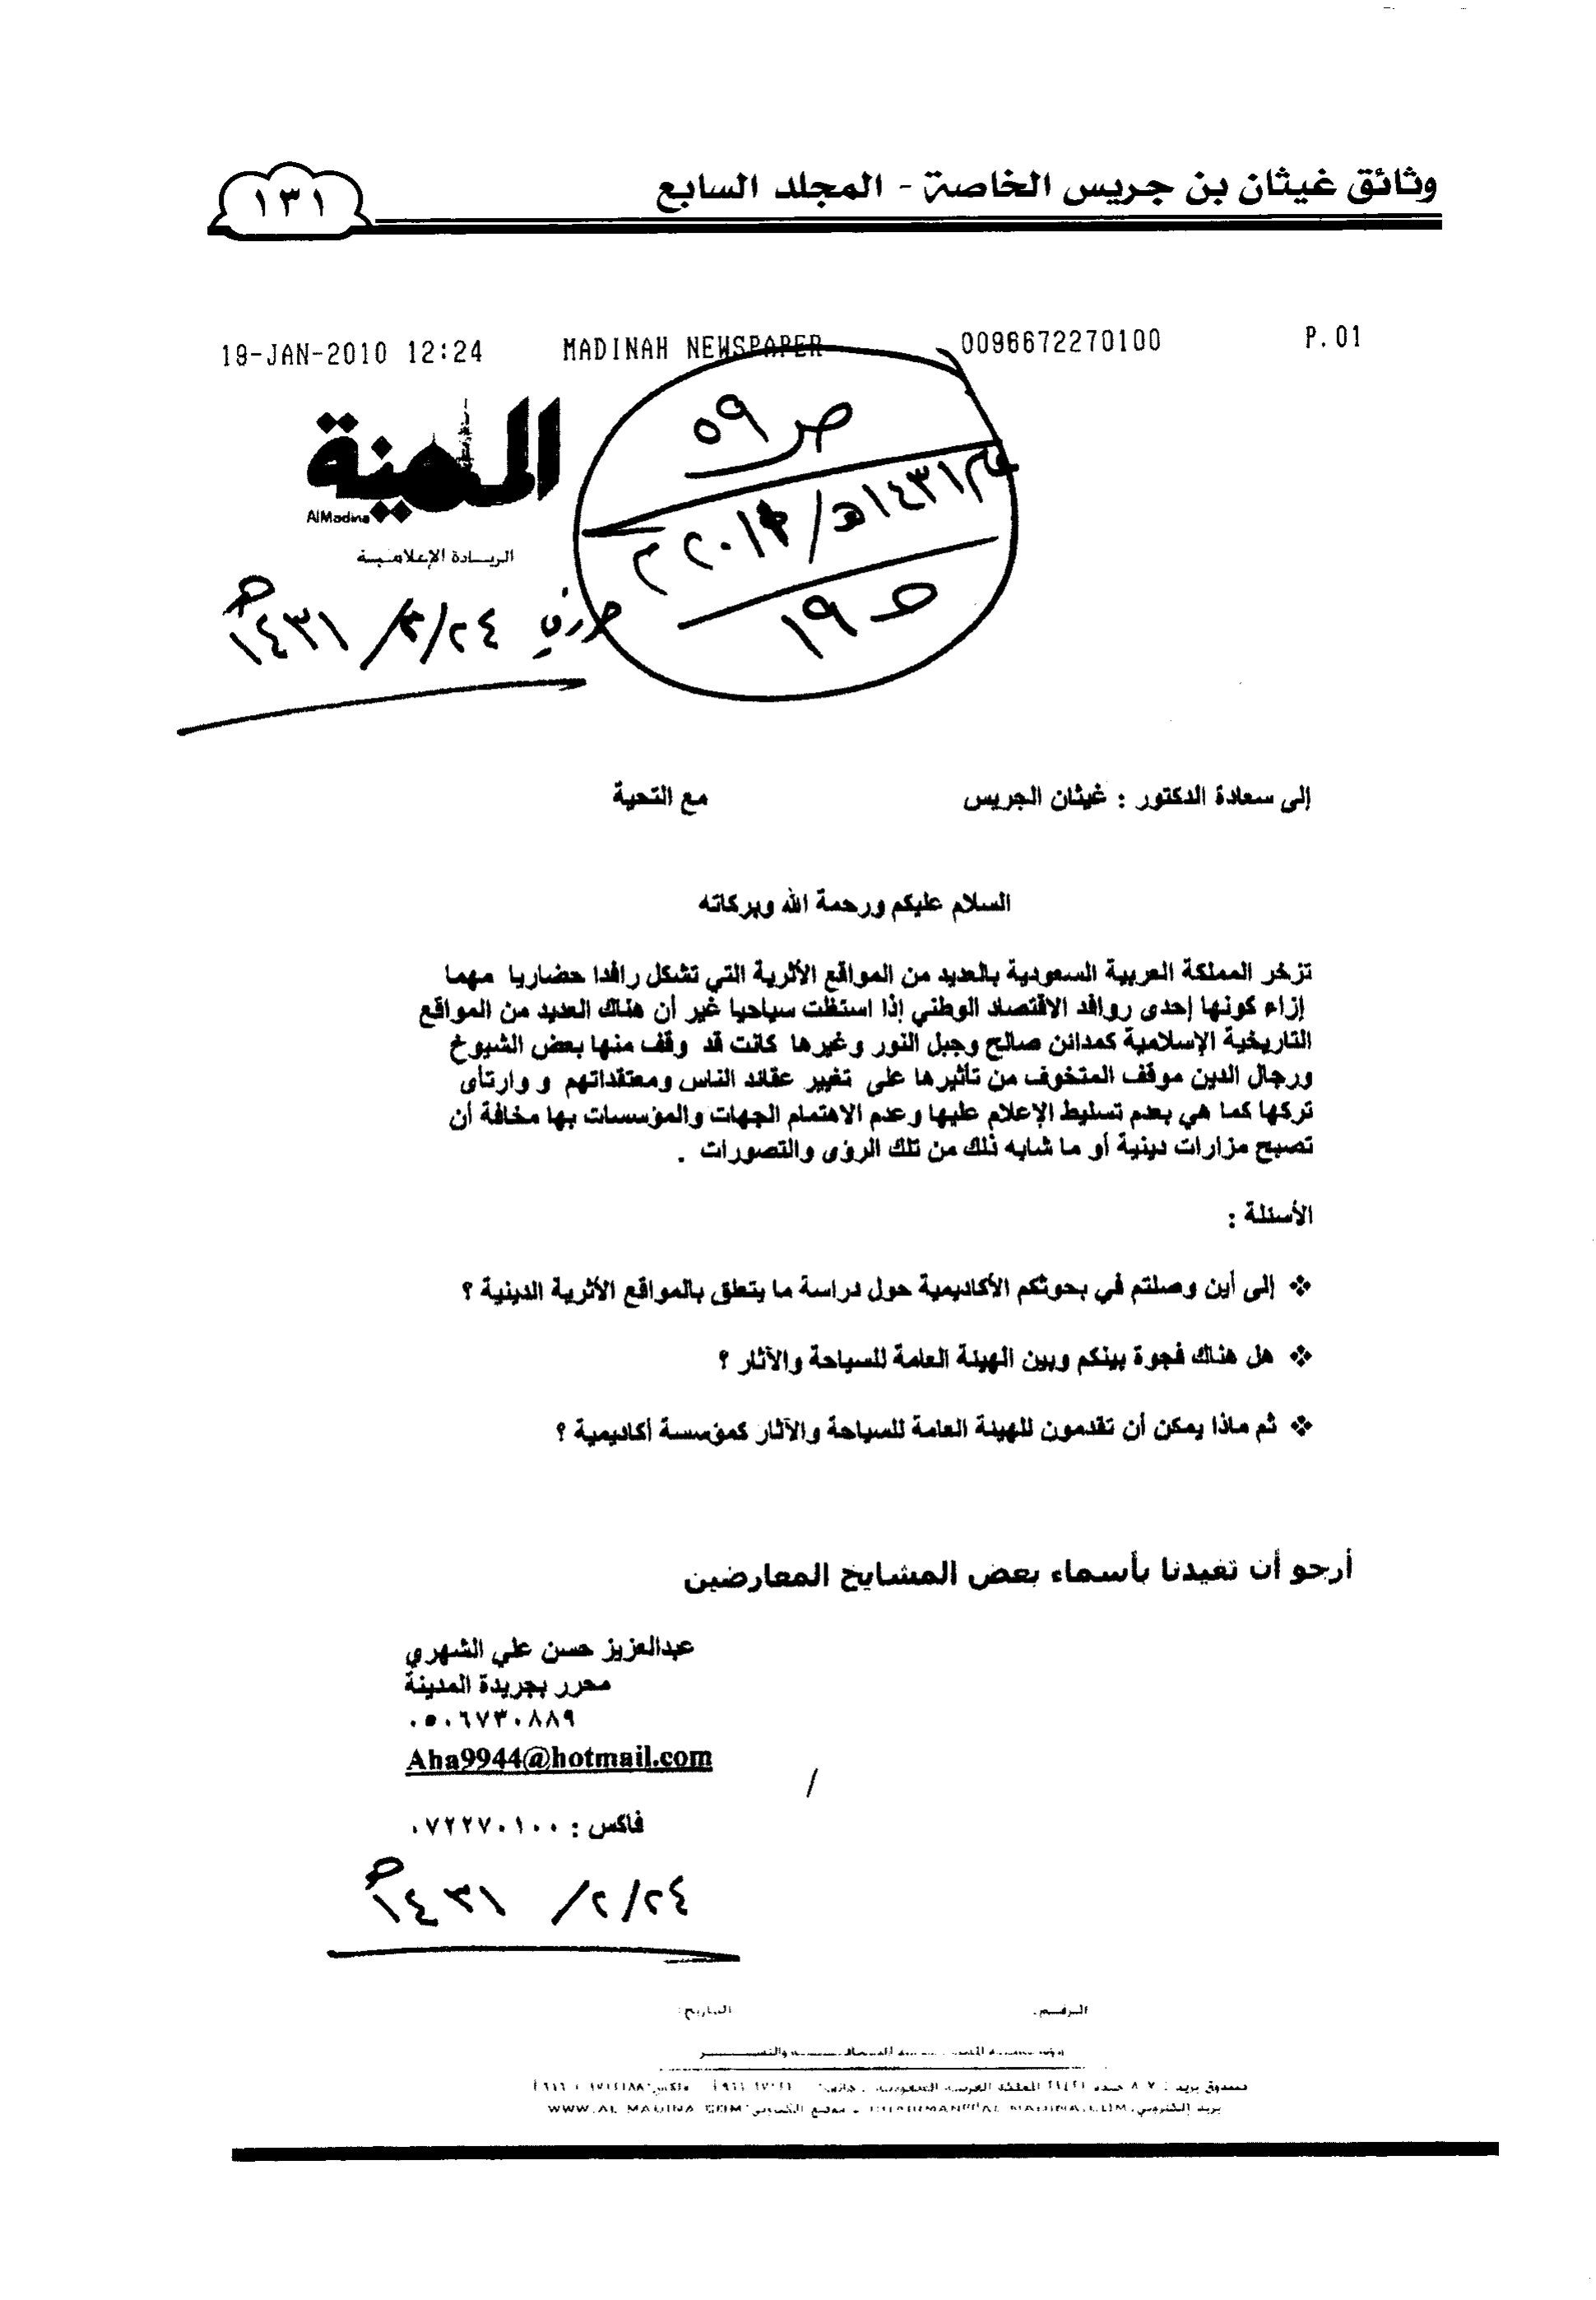 وثائق غيثان بن جريس الخاصة - المجلد السابع
١٣١
19-JAN-2010 12:24 MADINAH NEWSPAPER 0096672270100 P.01
المدينة
AlMadina
الريادة الإعلامية
ص ٥٩
عام ١٤٣١هـ / ٢٠١٠م
ص ١٩
حرر في ٢٤/٢/١٤٣١هـ
إلى سعادة الدكتور : غيثان الجريس مع التحية
السلام عليكم ورحمة الله وبركاته
تزخر المملكة العربية السعودية بالعديد من المواقع الأثرية التي تشكل رافدا حضاريا مهما
إزاء كونها إحدى روافد الاقتصاد الوطني إذا استغلت سياحيا غير أن هناك العديد من المواقع
التاريخية الإسلامية كمدائن صالح وجبل النور وغيرها كانت قد وقف منها بعض الشيوخ
ورجال الدين موقف المتخوف من تأثيرها على تغيير عقائد الناس ومعتقداتهم و وارتأى
تركها كما هي بعدم تسليط الإعلام عليها وعدم الاهتمام الجهات والمؤسسات بها مخافة أن
تصبح مزارات دينية أو ما شابه ذلك من تلك الرؤى والتصورات .
الأسئلة :
❖ إلى أين وصلتم في بحوثكم الأكاديمية حول دراسة ما يتعلق بالمواقع الأثرية الدينية ؟
❖ هل هناك فجوة بينكم وبين الهيئة العامة للسياحة والآثار ؟
❖ ثم ماذا يمكن أن تقدمون للهيئة العامة للسياحة والآثار كمؤسسة أكاديمية ؟
أرجو أن تفيدنا بأسماء بعض المشايخ المعارضين
عبدالعزيز حسن علي الشهري
محرر بجريدة المدينة
٠٥٠٦٧٣٠٨٨٩
Aha9944@hotmail.com
فاكس : ٠٧٢٢٧٠١٠٠
٢٤/٢/ ١٤٣١هـ
الرقم: التاريخ:
WWW.AL MADINA.COM